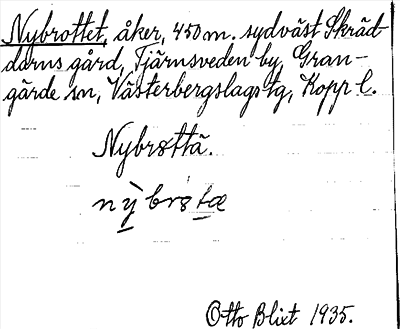 Nybrottet, åker, 450 m. sydväst Skräd-
darns gård, Tjärnsveden by, Gran-
gärde sn, Västerbergslags tg, Kopp l.
Nybrøttä.
nỳbrɞtæ
Otto Blixt 1935.